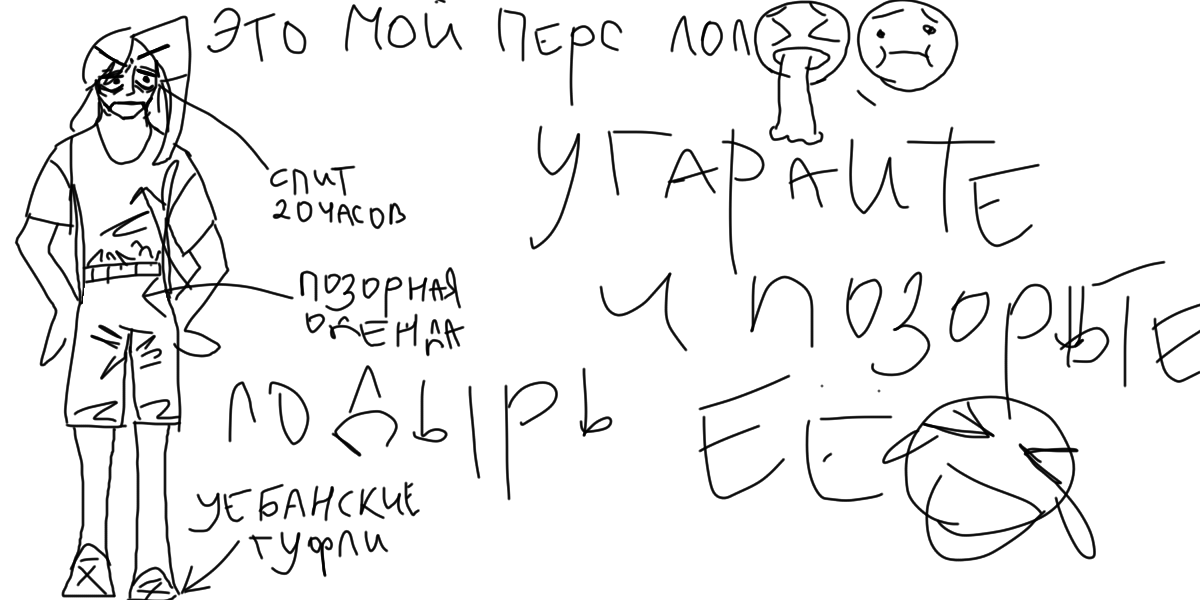 ЭТО МОЙ ПЕРС ЛОЛ
УГАРАЙТЕ
СПИТ
20 ЧАСОВ
И ПОЗОРЬТЕ
ПОЗОРНАЯ
ЛОДЫРЬ
ЕЁ
УЕБАНСКИЕ
ТУФЛИ